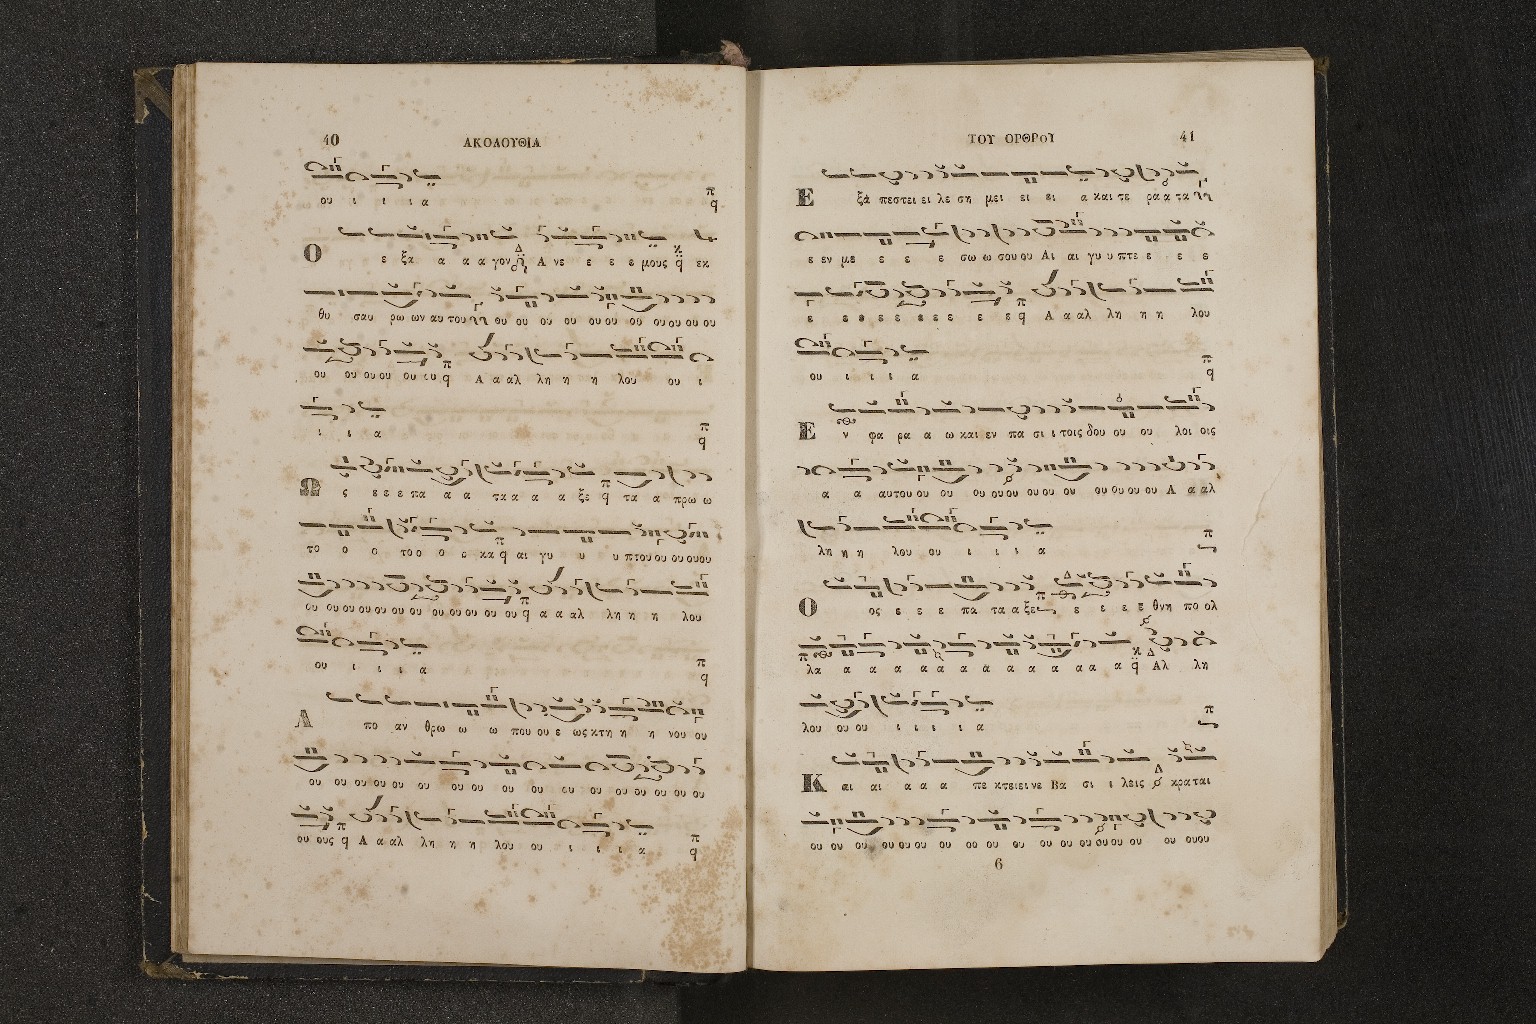 40 ΑΚΟΛΟΥΘΙΑ
ου ι ι ι α
Ο ε ξα α α α γον Α νε ε ε ε μους εκ
θυ σαυ ρω ων αυ του ου ου ου ου ου ου ου ου ου ου ου
ου ου ου ου ου ου Α α αλ λη η η λου ου ι
ι ι α
Ω ς ε ε ε πα α α τα α α α ξε τα α πρω ω
το ο ο το ο ο ο κα αι γυ υ υ πτου ου ου ουου
ου ου ου ου ου ου ου ου ου ου ου ου ου α α αλ λη η η λου
ου ι ι ι α
Α πο αν θρω ω ω που ου ε ως κτη η η νου ου
ου ου ου ου ου ου ου ου ου ου ου ου ου ου ου ου
ου ους Α α αλ λη η η λου ου ι ι ι α
ΤΟΥ ΟΡΘΡΟΥ 41
Ε ξα πεστει ει λε ση μει ει ει α και τε ρα α τα
ε εν με ε ε ε σω ω σου ου Αι αι γυ υ πτε ε ε ε
ε ε ε ε ε ε ε ε ε ε Α α αλ λη η η λου
ου ι ι ι α
Ε ν φα ρα α ω και εν πα σι ι τοις δου ου ου λοι οις
α α αυτου ου ου ου ου ου ου ου ου ου ου ου ου Α α αλ
λη η η λου ου ι ι ι α
Ο ος ε ε ε πα τα α ξε ε ε ε ε θνη πο ολ
λα α α α α α α α α α α α α α α Αλ λη
λου ου ου ι ι ι ι α
Κ αι αι α α α πε κτειει νε Βα σι ι λεις κρα ται
ου ου ου ου ου ου ου οο ου ου ου ου ου ου ου ου ου ουου
6